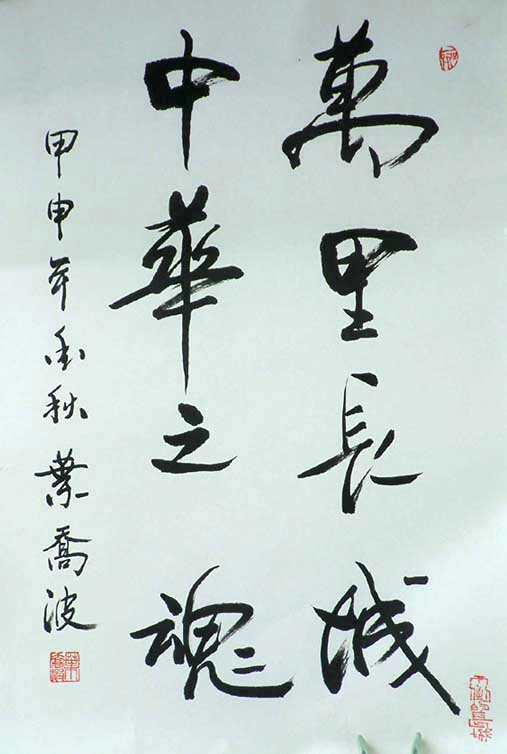 萬里長城
中華之魂
甲申年金秋 葉喬波